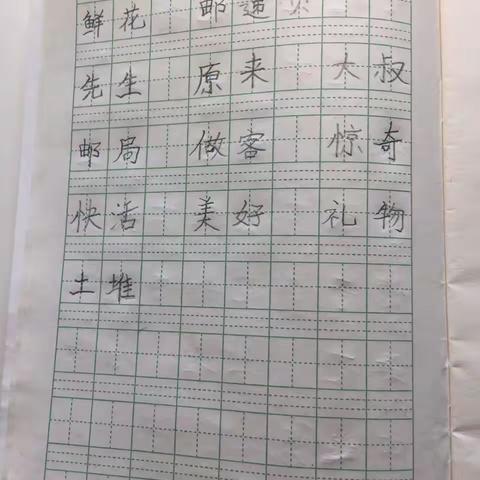 鲜花 邮递员
先生 原来 大叔
邮局 做客 惊奇
快活 美好 礼物
土堆